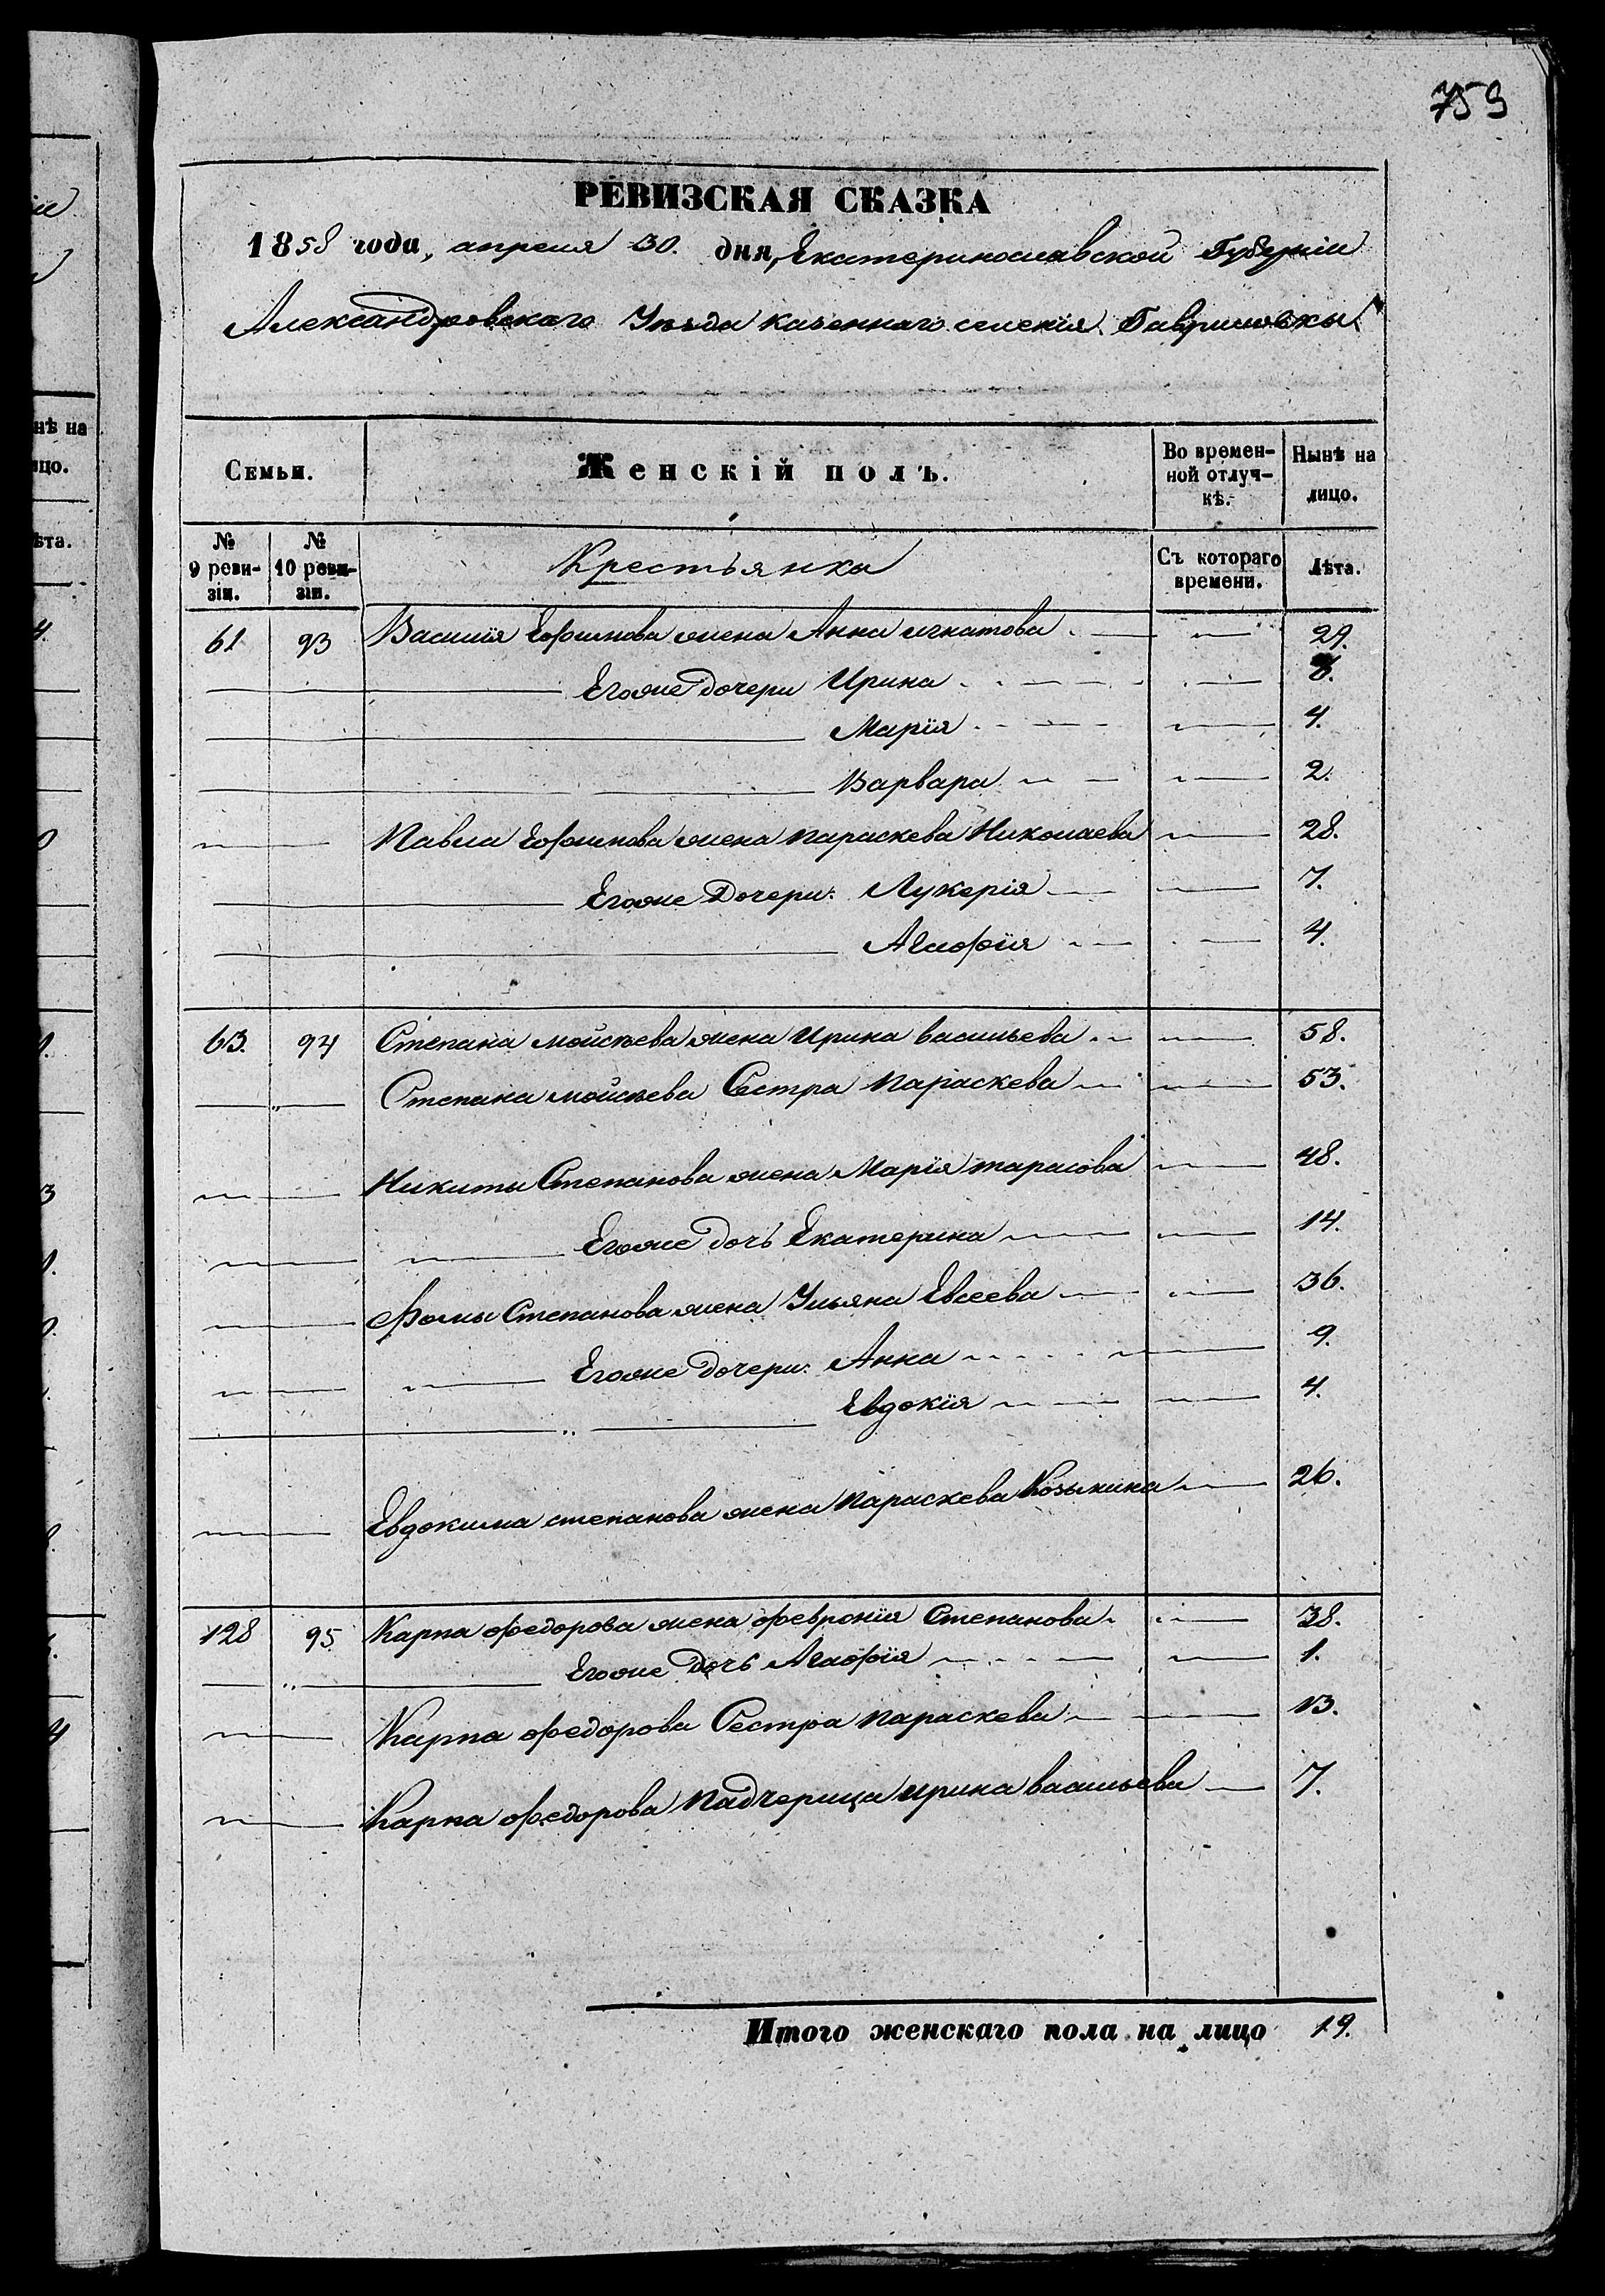 759
РЕВИЗСКАЯ СКАЗКА
1858 года, апреля 30. дня, Екатеринославской Губерніи
Александровскаго Уѣзда казеннаго селенія Гавриловки
Семьи. Женскій полъ. Во времен- Нынѣ на
ной отлуч- лицо.
кѣ.
№ № Крестьянка Съ котораго Лѣта.
9 реви- 10 реви- времени.
зіи. зіи.
61 93 Василія Ефимова жена Анна игнатова 29.
Егоже дочери Ирина
Марія 4.
Варвара 2.
Павла Ефимова жена параскева Николаева 28.
Егоже Дочери: Лукерія 7.
Агафія 4.
63. 94 Степана мойсѣева жена Ирина васильева 58.
Степана мойсѣева Сестра Параскева 53.
Никиты Степанова жена Марія тарасова 48.
Егоже дочь Екатерина 14.
Фомы Степанова жена Ульяна Евсеева 36.
Егоже дочери: Анна 9.
Евдокія 4.
Евдокима степанова жена Параскева Козьмина 26.
128 95 Карпа федорова жена февронія Степанова 38.
Егоже Дочь Агафія 1.
Карпа федорова Сестра параскева 13.
Карпа федорова Падчерица ирина васильева 7.
Итого женскаго пола на лицо 19.